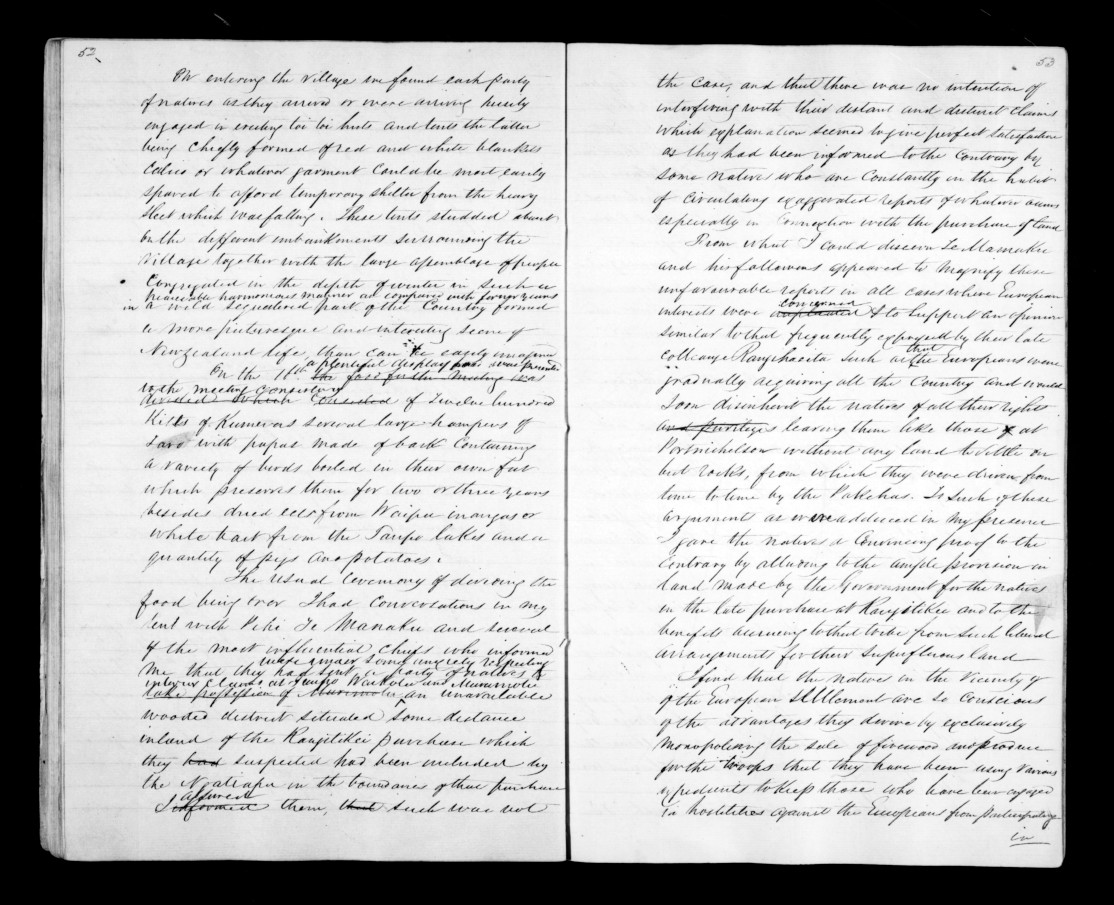 52
On entering the village we found each party
of natives as they arrived or were arriving busily
engaged in erecting toi toi huts and tents the latter
being chiefly formed of red and white blankets
Calico or whatever garment could be most easily
spared to afford temporary shelter from the heavy
sleet which was falling. These tents studded about
on the different embankments surrounding the
village together with the large assemblage of people
Congregated in the depth of winter in such a
peaceable harmonious manner as compared with former years
in a wild sequestered part of the Country formed
a more picturesque and interesting scene of
New Zealand life, than can be easily imagined
a plentiful display was
On the 11th the food for the Meeting was
with meeting consisting
divided which Consisted of twelve hundred
Kitts of Kumeras several large hampers of
Taro with papas made of bark Containing
a variety of birds boiled in their own fat
which preserves them for two or three years
besides dried eels from Waipu inangas or
white bait from the Taupo lakes and a
quantity of pigs and potatoes.
The usual Ceremony of dividing the
food being over I had Conversations in my
tent with Pehi Te Mamaku and several
of the most influential Chiefs who informed
were under some anxiety respecting
me that they had sent a party of natives to
interior claims at Taupo Waikato and Murimotu
take possession of Murimotu an unavailable
wooded district situated some distance
inland of the Rangitikei purchase which
they had suspected had been included by
the Ngatiapa in the boundaries of that purchase
assured
I informed them, that such was not
53
the case, and that there was no intention of
interfering with their distant and distinct claims
which explanation seemed to give perfect satisfaction
as they had been informed to the Contrary by
some natives who are Constantly in the habit
of Circulating exaggerated reports of whatever occurs
especially in Connection with the purchase of land
From what I could discern Te Mamaku
and his followers appeared to magnify these
unfavourable reports in all cases where European
concerned
interests were implicated & to support an opinion
similar to that frequently expressed by their late
that
colleague Rangihaeata such as the Europeans were
gradually acquiring all the Country and would
soon disinherit the natives of all their rights
and privileges leaving them like those at
Portnicholson without any land to settle on
but rocks, from which they were driven from
time to time by the Pakehas. To such of these
arguments as were adduced in my presence
I gave the natives a Convincing proof to the
contrary by alluding to the ample provision in
land made by the Government for the natives
in the late purchase at Rangitikei and to the
benefits accruing to that tribe from such liberal
arrangements for their superfluous land
I find that the natives in the vicinity of
of the European settlement are so Conscious
of the advantages they derive by exclusively
Monopolising the sale of firewood and produce
for the troops that they have been using various
expedients to keep those who have been engaged
in hostilities against the Europeans from participating
in